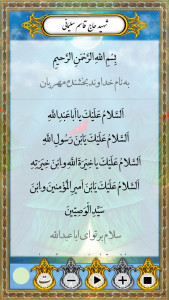 شهید حاج قاسم سلیمانی
بِسْمِ اللهِ الرَّحْمنِ الرَّحیمِ
به نام خداوند بخشنده مهربان
اَلسَّلامُ عَلَیْكَ یا اَباعَبْدِاللهِ
اَلسَّلامُ عَلَیْكَ یَابْنَ رَسُولِ اللهِ
اَلسَّلامُ عَلَیْكَ یا خِیَرَةَ اللهِ وابْنَ خِیَرَتِهِ
اَلسَّلامُ عَلَیْكَ یَابْنَ اَمیرِ الْمُؤْمِنینَ وابْنَ
سَیِّدِ الْوَصِیّینَ
سلام بر تو ای ابا عبدالله
ت